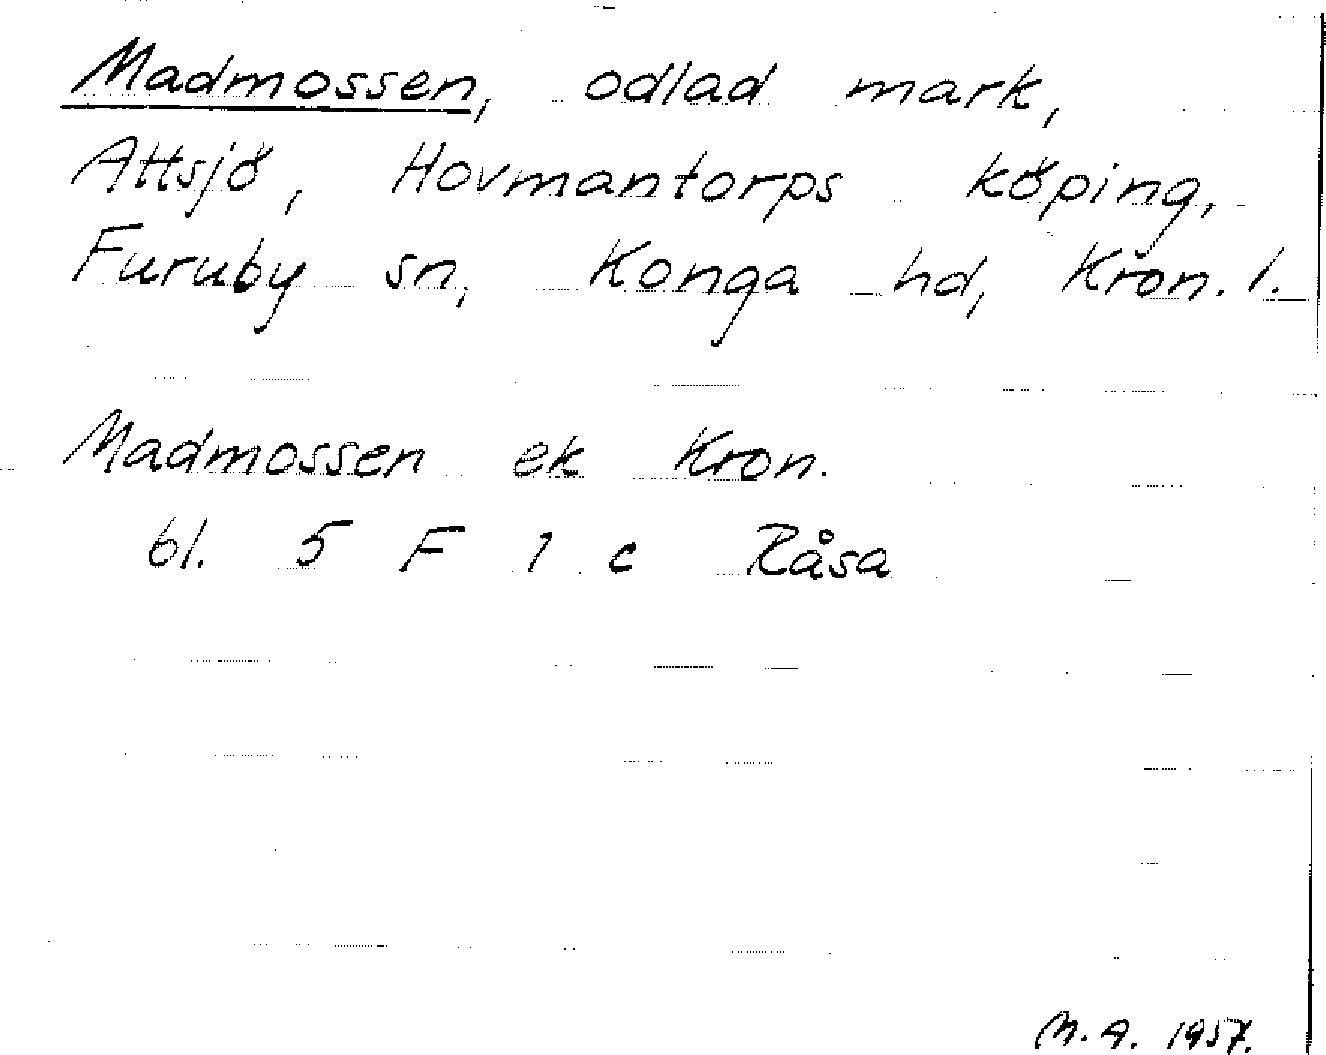 Madmossen, odlad mark,
Attsjö, Hovmantorps köping,
Furuby sn, Konga hd, Kron. l.
Madmossen ek Kron.
bl. 5 F 1 c Råsa
M.A. 1957.